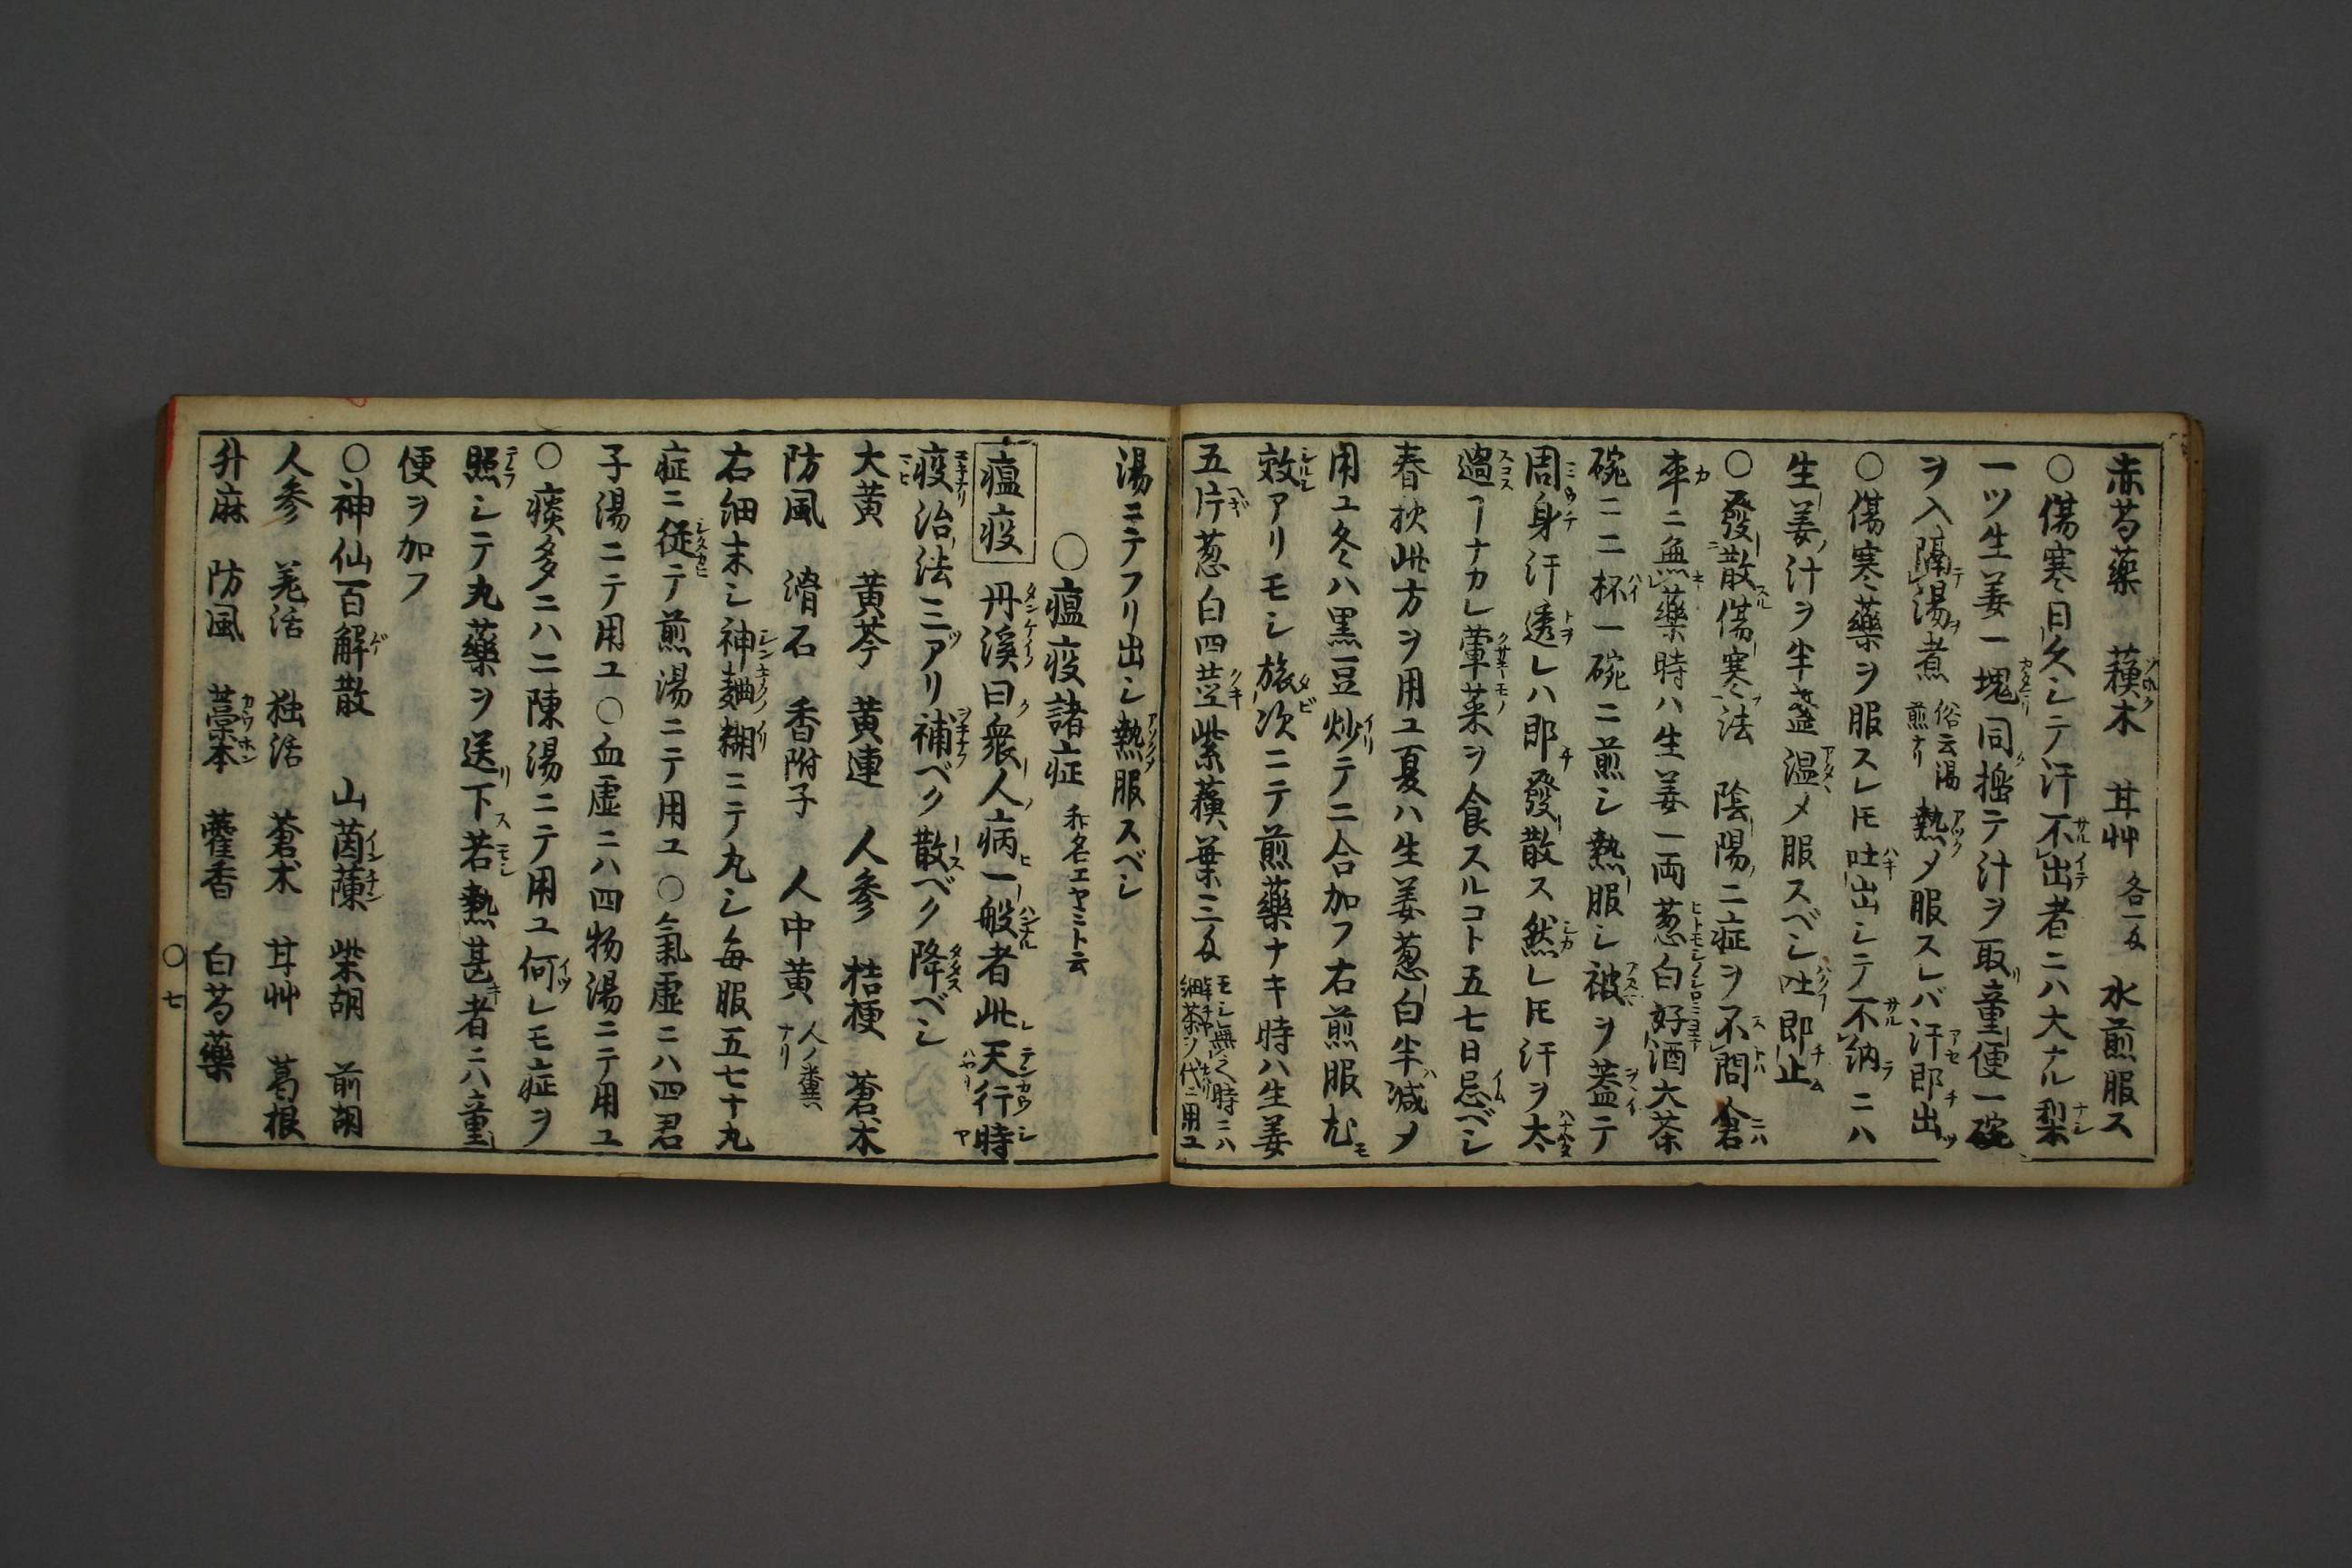 赤芍藥　蘓木　甘艸　各一匁　水煎服ス
○傷寒日久シテ汗不出者ニハ大ナル梨
一ツ生姜一塊同搗テ汁ヲ取童便一碗
ヲ入隔湯煮　俗云湯煎ナリ　熱メ服スレバ汗即出
○傷寒藥ヲ服スレ𪜈吐出シテ不納ニハ
生姜汁ヲ半盞温メ服スベシ吐即止
○發散傷寒法　陰陽二症ヲ不問倉
卒ニ無藥時ハ生姜一両葱白好酒大茶
碗ニ二杯一碗ニ煎シ熱服シ被ヲ蓋テ
周身汗透レハ即發散ス然レ𪜈汗ヲ太
過ヿナカレ葷菜ヲ食スルコト五七日忌ベシ
春秋此方ヲ用ユ夏ハ生姜葱白半減メ
用ユ冬ハ黒豆炒テ二合加フ右煎服尤
效アリモシ旅次ニテ煎藥ナキ時ハ生姜
五片葱白四茎紫蘓葉三匁　モシ無之時ニハ細茶ヲ代ニ用ユ
湯ニテフリ出シ熱服スベシ
○瘟疫諸症　和名エヤミト云
瘟疫　丹溪曰衆人病一般者此天行時
疫治法三アリ補ベク散ベク降ベシ
大黄　黄芩　黄連　人参　桔梗　蒼朮
防風　滑石　香附子　人中黄　人ノ糞ナリ
右細末シ神麯糊ニテ丸シ毎服五七十丸
症ニ従テ煎湯ニテ用ユ○氣虚ニハ四君
子湯ニテ用ユ○血虚ニハ四物湯ニテ用ユ
○痰多ニハ二陳湯ニテ用ユ何レモ症ヲ
照シテ丸藥ヲ送下ス若熱甚者ニハ童
便ヲ加フ
○神仙百解散　山茵蔯　柴胡　前胡
人参　羌活　独活　蒼朮　甘艸　葛根
升麻　防風　藁本　藿香　白芍藥
○七